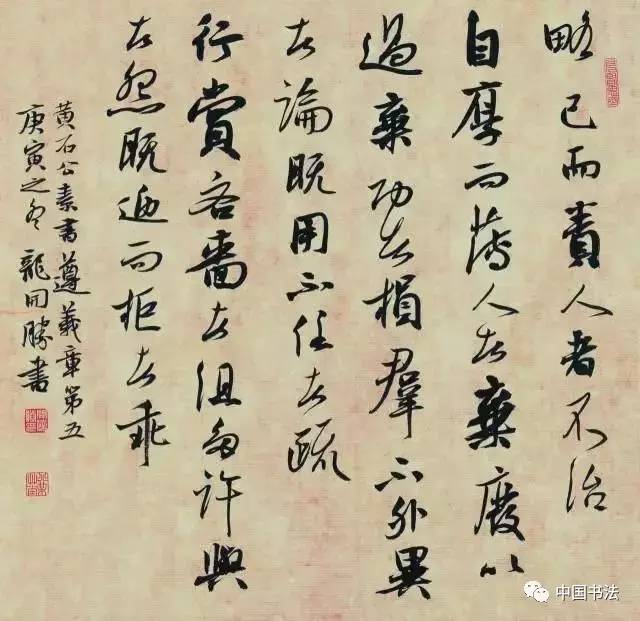 略己而責人者不治
自厚而薄人者棄廢以
過棄功者損羣下外異
者論既用不任者疏
行賞吝嗇者沮多許與
者怨既迎而拒者乖
黃石公素書遵義章第五
庚寅之冬龍開勝書
中国书法